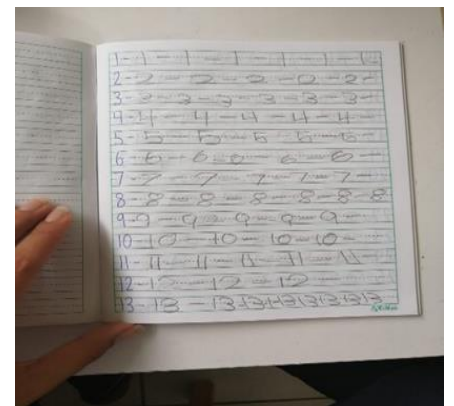 1-1-1-1-1-1-1
2-2-2-2-0-2-
3-3-3-3-3-3-
4-4-4-4-4-4-
5-5-5-5-5-5-
6-6-6 6-6-6-
7-7-7-7-7-7-
8-8-8-8-8-8-8
9-9-9-9-9-9-
10-10-10-10-10-
11-11-11-11-11-11-
12-12-12-12-
13-13-13+3+13131313